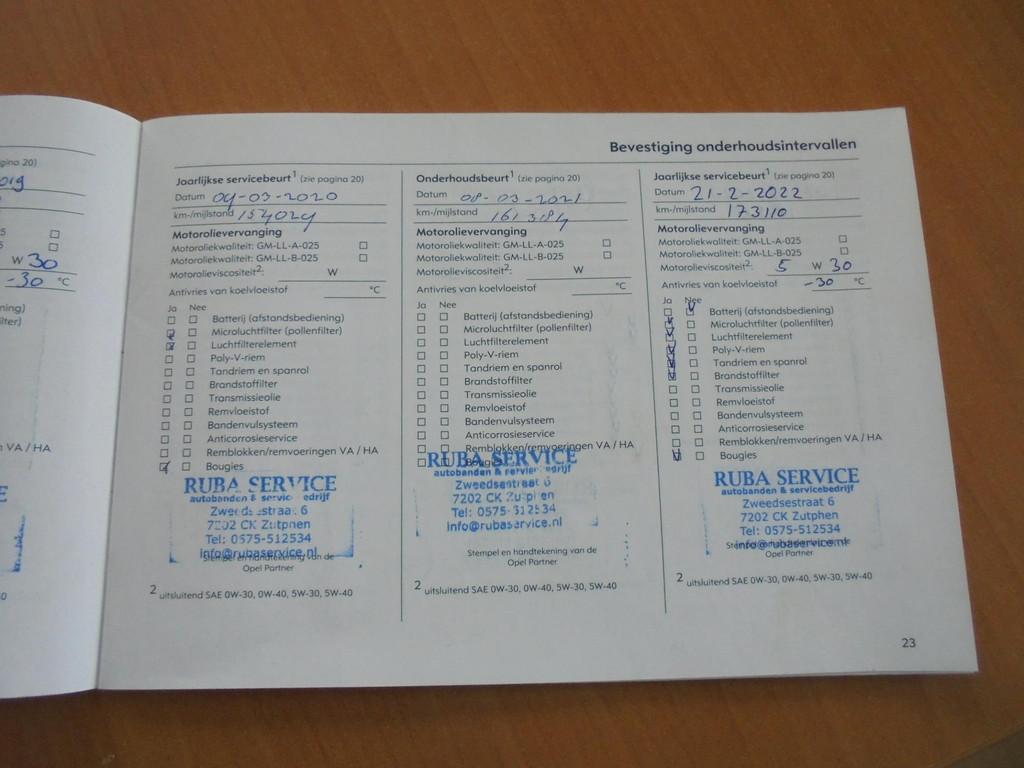 gina 20)
W 30
-30 °C
VA / HA
Bevestiging onderhoudsintervallen
Jaarlijkse servicebeurt1 (zie pagina 20)
Datum 04-03-2020
km-/mijlstand 154024
Motorolievervanging
Motoroliekwaliteit: GM-LL-A-025
Motoroliekwaliteit: GM-LL-B-025
Motorolieviscositeit2: W
Antivries van koelvloeistof °C
Ja Nee
Batterij (afstandsbediening)
Microluchtfilter (pollenfilter)
Luchtfilterelement
Poly-V-riem
Tandriem en spanrol
Brandstoffilter
Transmissieolie
Remvloeistof
Bandenvulsysteem
Anticorrosieservice
Remblokken/remvoeringen VA / HA
Bougies
RUBA SERVICE
autobanden & servicebedrijf
Zweedsestraat 6
7202 CK Zutphen
Tel: 0575-512534
info@rubaservice.nl
Stempel en handtekening van de
Opel Partner
2 uitsluitend SAE 0W-30, 0W-40, 5W-30, 5W-40
Onderhoudsbeurt1 (zie pagina 20)
Datum 08-03-2021
km-/mijlstand 161384
Motorolievervanging
Motoroliekwaliteit: GM-LL-A-025
Motoroliekwaliteit: GM-LL-B-025
Motorolieviscositeit2: W
Antivries van koelvloeistof °C
Ja Nee
Batterij (afstandsbediening)
Microluchtfilter (pollenfilter)
Luchtfilterelement
Poly-V-riem
Tandriem en spanrol
Brandstoffilter
Transmissieolie
Remvloeistof
Bandenvulsysteem
Anticorrosieservice
Remblokken/remvoeringen VA / HA
Bougies
RUBA SERVICE
autobanden & servicebedrijf
Zweedsestraat 6
7202 CK Zutphen
Tel: 0575-512534
info@rubaservice.nl
Stempel en handtekening van de
Opel Partner
2 uitsluitend SAE 0W-30, 0W-40, 5W-30, 5W-40
Jaarlijkse servicebeurt1 (zie pagina 20)
Datum 21-2-2022
km-/mijlstand 173110
Motorolievervanging
Motoroliekwaliteit: GM-LL-A-025
Motoroliekwaliteit: GM-LL-B-025
Motorolieviscositeit2: 5 W 30
Antivries van koelvloeistof -30 °C
Ja Nee
Batterij (afstandsbediening)
Microluchtfilter (pollenfilter)
Luchtfilterelement
Poly-V-riem
Tandriem en spanrol
Brandstoffilter
Transmissieolie
Remvloeistof
Bandenvulsysteem
Anticorrosieservice
Remblokken/remvoeringen VA / HA
Bougies
RUBA SERVICE
autobanden & servicebedrijf
Zweedsestraat 6
7202 CK Zutphen
Tel: 0575-512534
info@rubaservice.nl
Stempel en handtekening van de
Opel Partner
2 uitsluitend SAE 0W-30, 0W-40, 5W-30, 5W-40
23